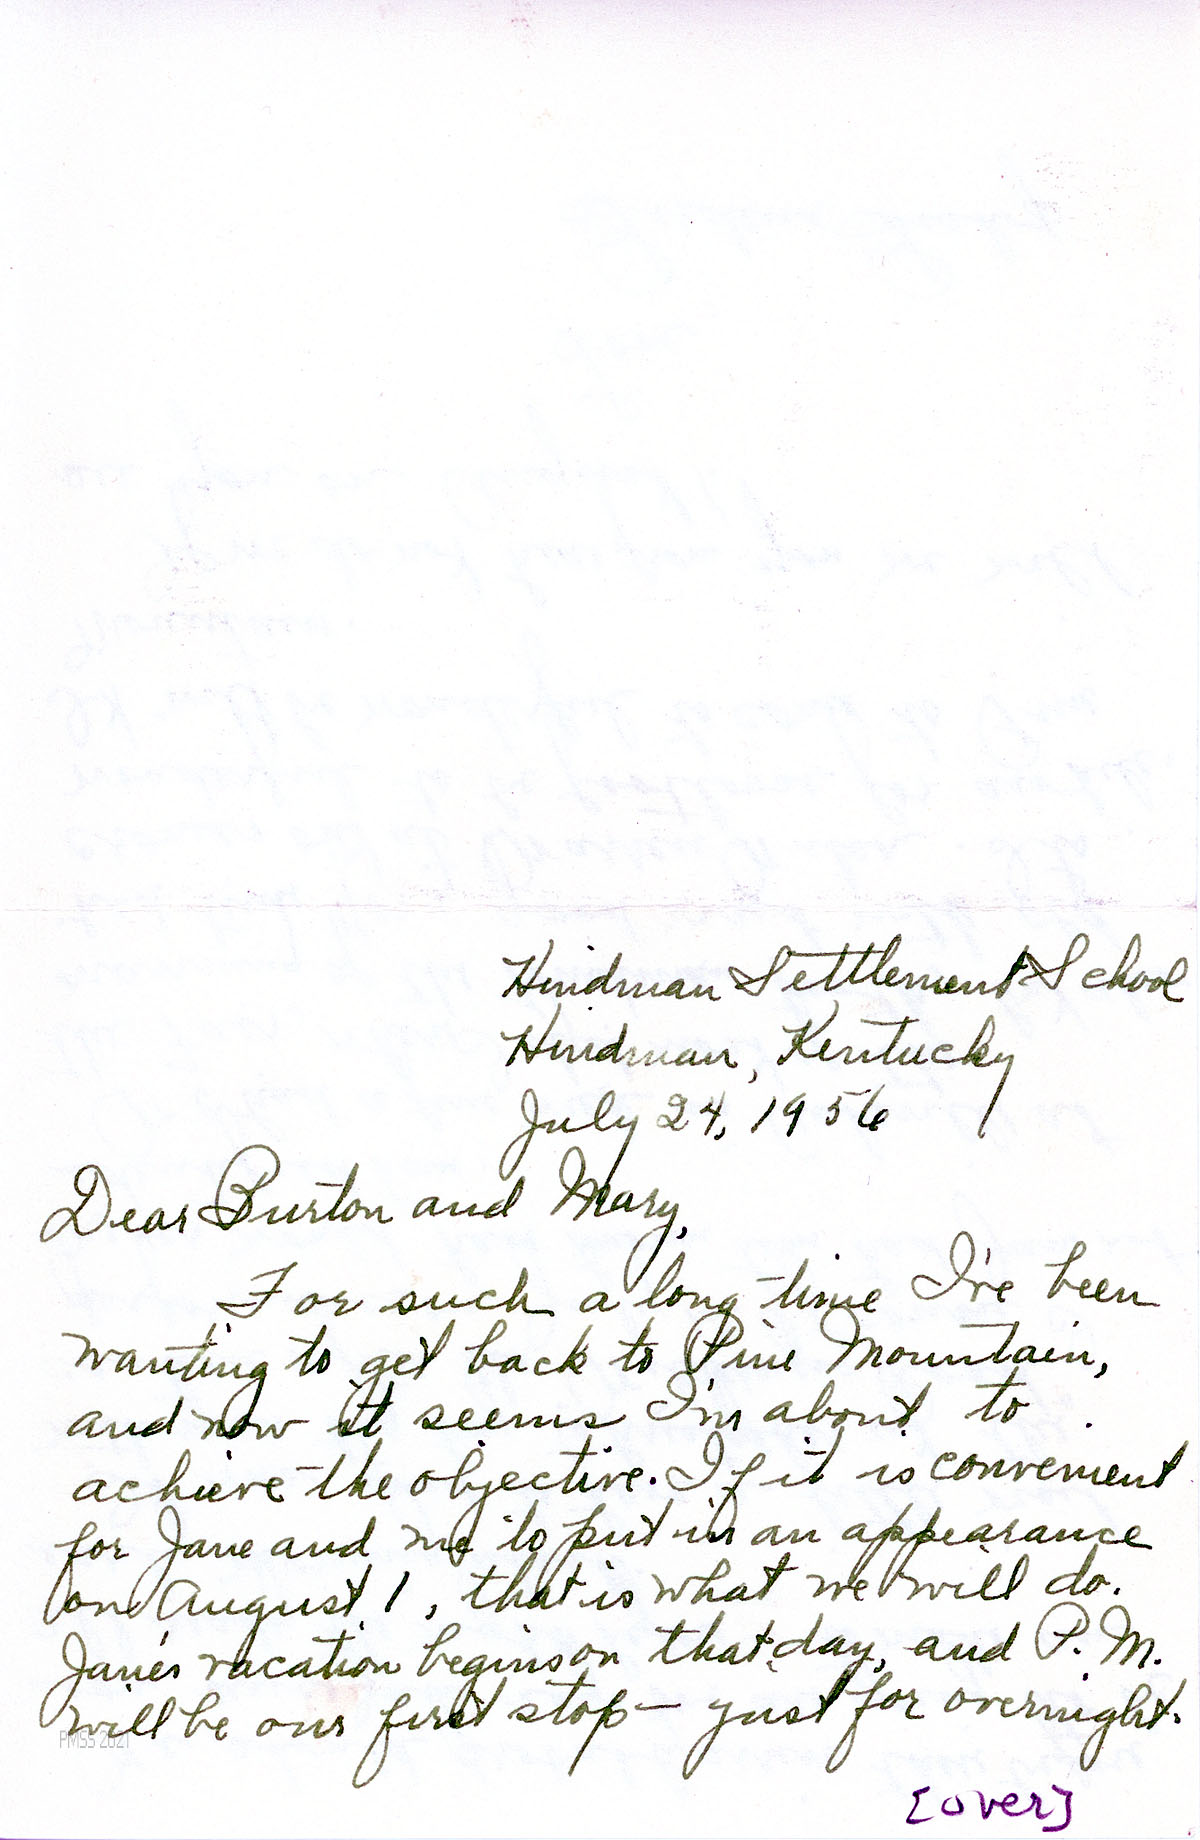 Hindman Settlement School
Hindman, Kentucky
July 24, 1956
Dear Burton and Mary,
For such a long time I've been
wanting to get back to Pine Mountain,
and now it seems I'm about to
achieve the objective. If it is convenient
for Jane and me to put in an appearance
on August 1, that is what we will do.
Jane's vacation begins on that day, and P. M.
will be our first stop — just for overnight.
PMSS 2021
[over]